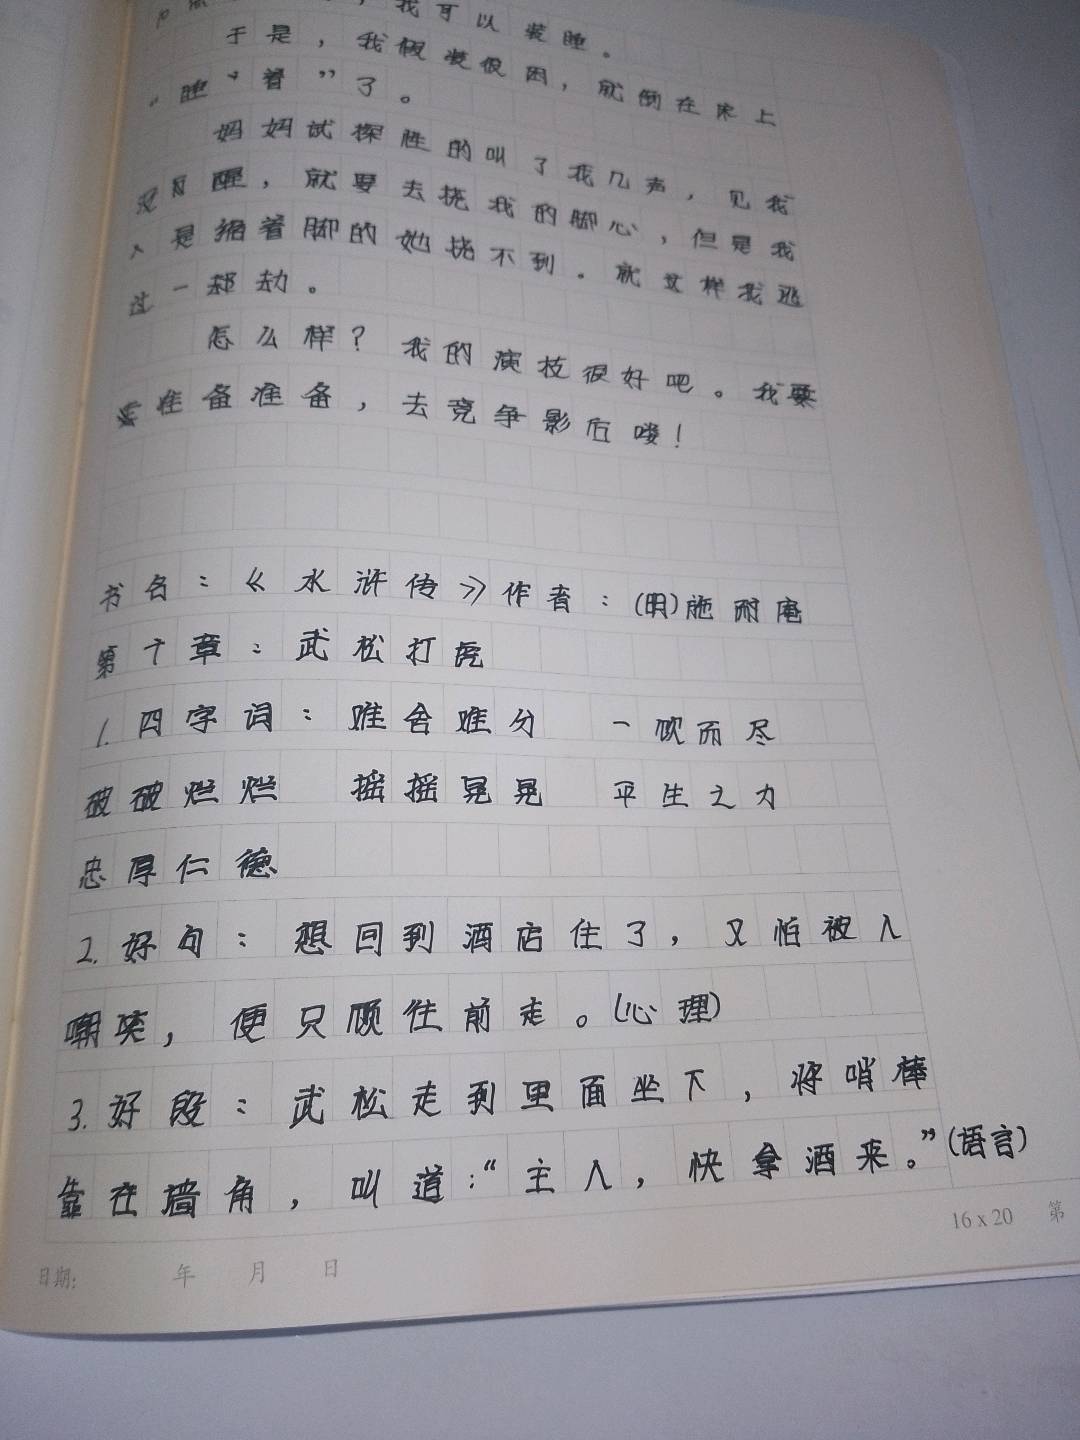 我可以装睡。
于是，我假装很困，就倒在床上
“睡着”了。
妈妈试探性的叫了我几声，见我
没有醒，就要去挠我的脚心，但是我
是缩着脚的她挠不到。就这样我逃
过一劫。
怎么样？我的演技很好吧。我要
准备准备，去竞争影后喽！
书名：《水浒传》作者：(明)施耐庵
第十章：武松打虎
1.四字词：难舍难分 一饮而尽
破破烂烂 摇摇晃晃 平生之力
忠厚仁德
2.好句：想回到酒店住了，又怕被人
嘲笑，便只顾往前走。(心理)
3.好段：武松走到里面坐下，将哨棒
靠在墙角，叫道：“主人，快拿酒来。”(语言)
16 x 20 第
日期： 年 月 日